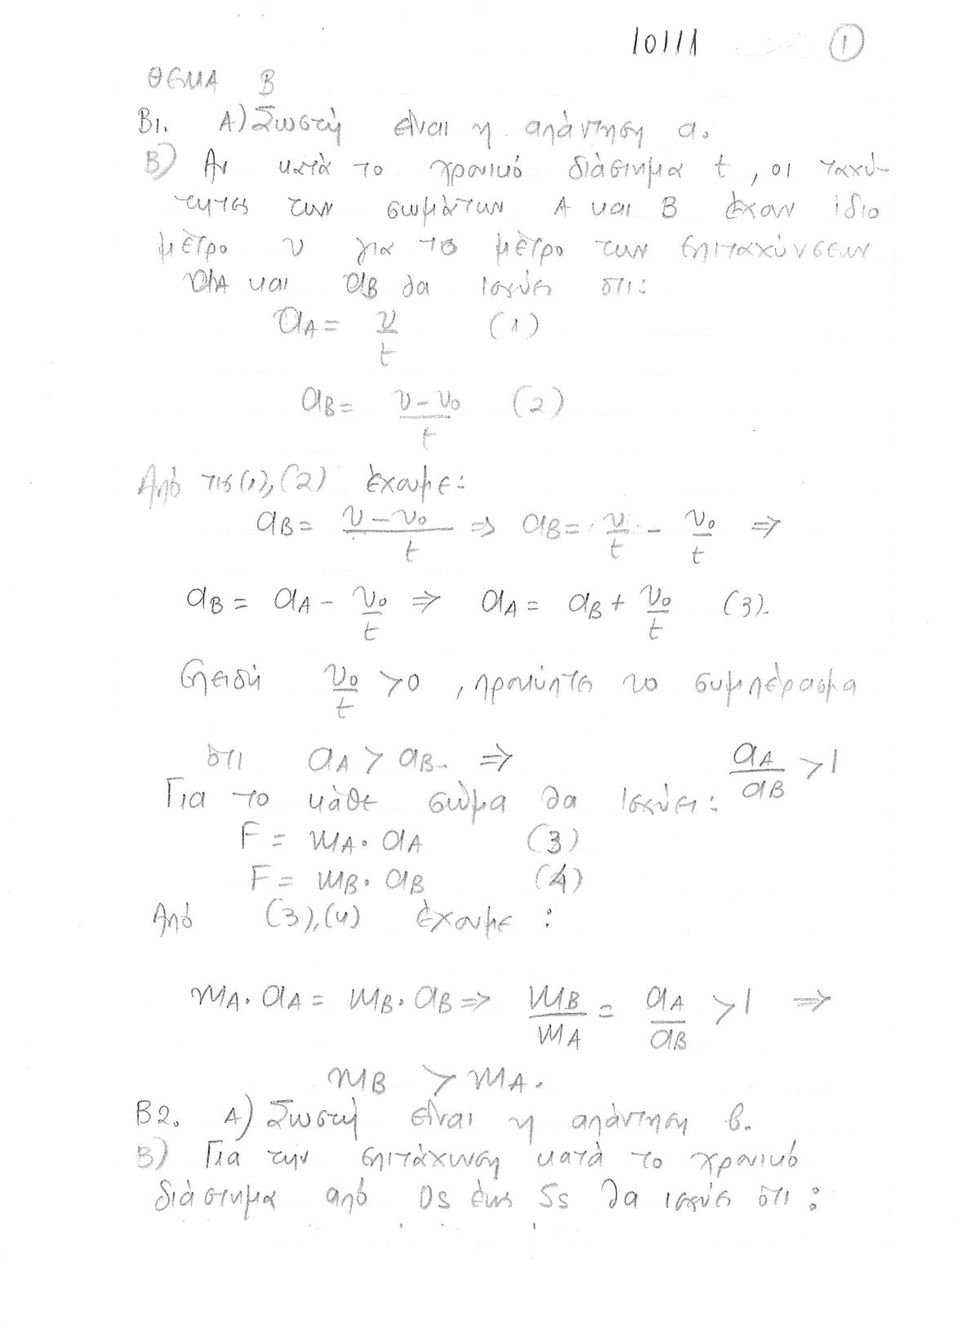 10111 1
ΘΕΜΑ Β
Β1. Α) Σωστή είναι η απάντηση α.
Β) Αν κατά το χρονικό διάστημα t, οι ταχύ-
τητες των σωμάτων Α και Β έχουν ίδιο
μέτρο υ για το μέτρο των επιταχύνσεων
αΑ και αΒ θα ισχύει ότι:
αΑ = υ/t (1)
αΒ = υ-υ₀/t (2)
Από τις (1), (2) έχουμε:
αΒ = υ-υ₀/t ⇒ αΒ = υ/t - υ₀/t ⇒
αΒ = αΑ - υ₀/t ⇒ αΑ = αΒ + υ₀/t (3).
Επειδή υ₀/t >0, προκύπτει το συμπέρασμα
ότι αΑ > αΒ. ⇒ αΑ/αΒ >1
Για το κάθε σώμα θα ισχύει:
F = mΑ · αΑ (3)
F = mΒ · αΒ (4)
Από (3), (4) έχουμε:
mΑ · αΑ = mΒ · αΒ ⇒ mΒ/mΑ = αΑ/αΒ >1 ⇒
mΒ > mΑ.
Β2. Α) Σωστή είναι η απάντηση β.
Β) Για την επιτάχυνση κατά το χρονικό
διάστημα από 0s έως 5s θα ισχύει ότι: